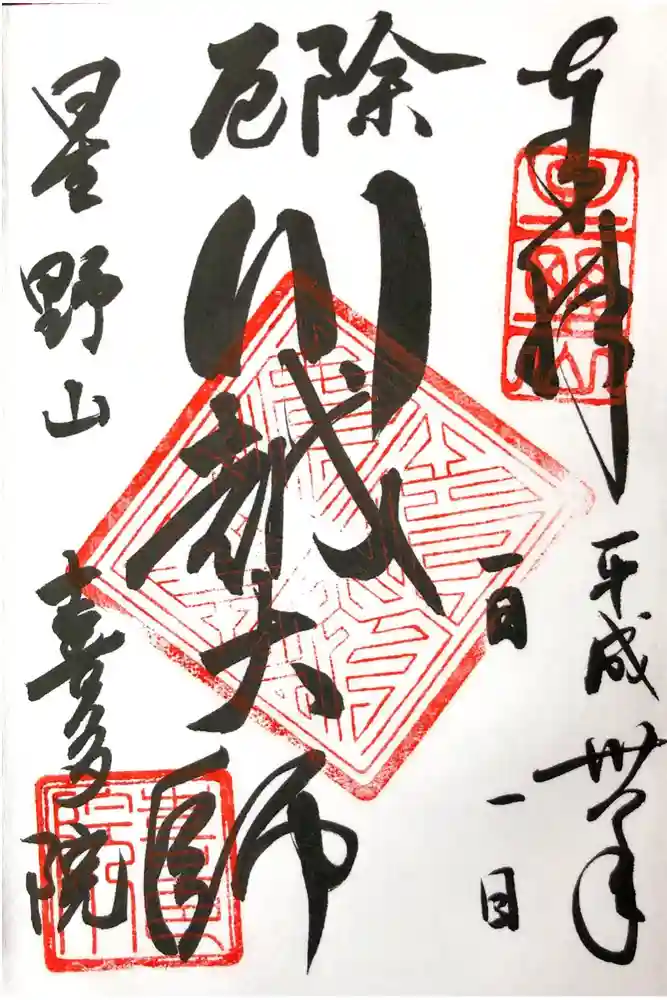 奉拝
平成卅年
一月一日
厄除
川越大師
星野山
喜多院